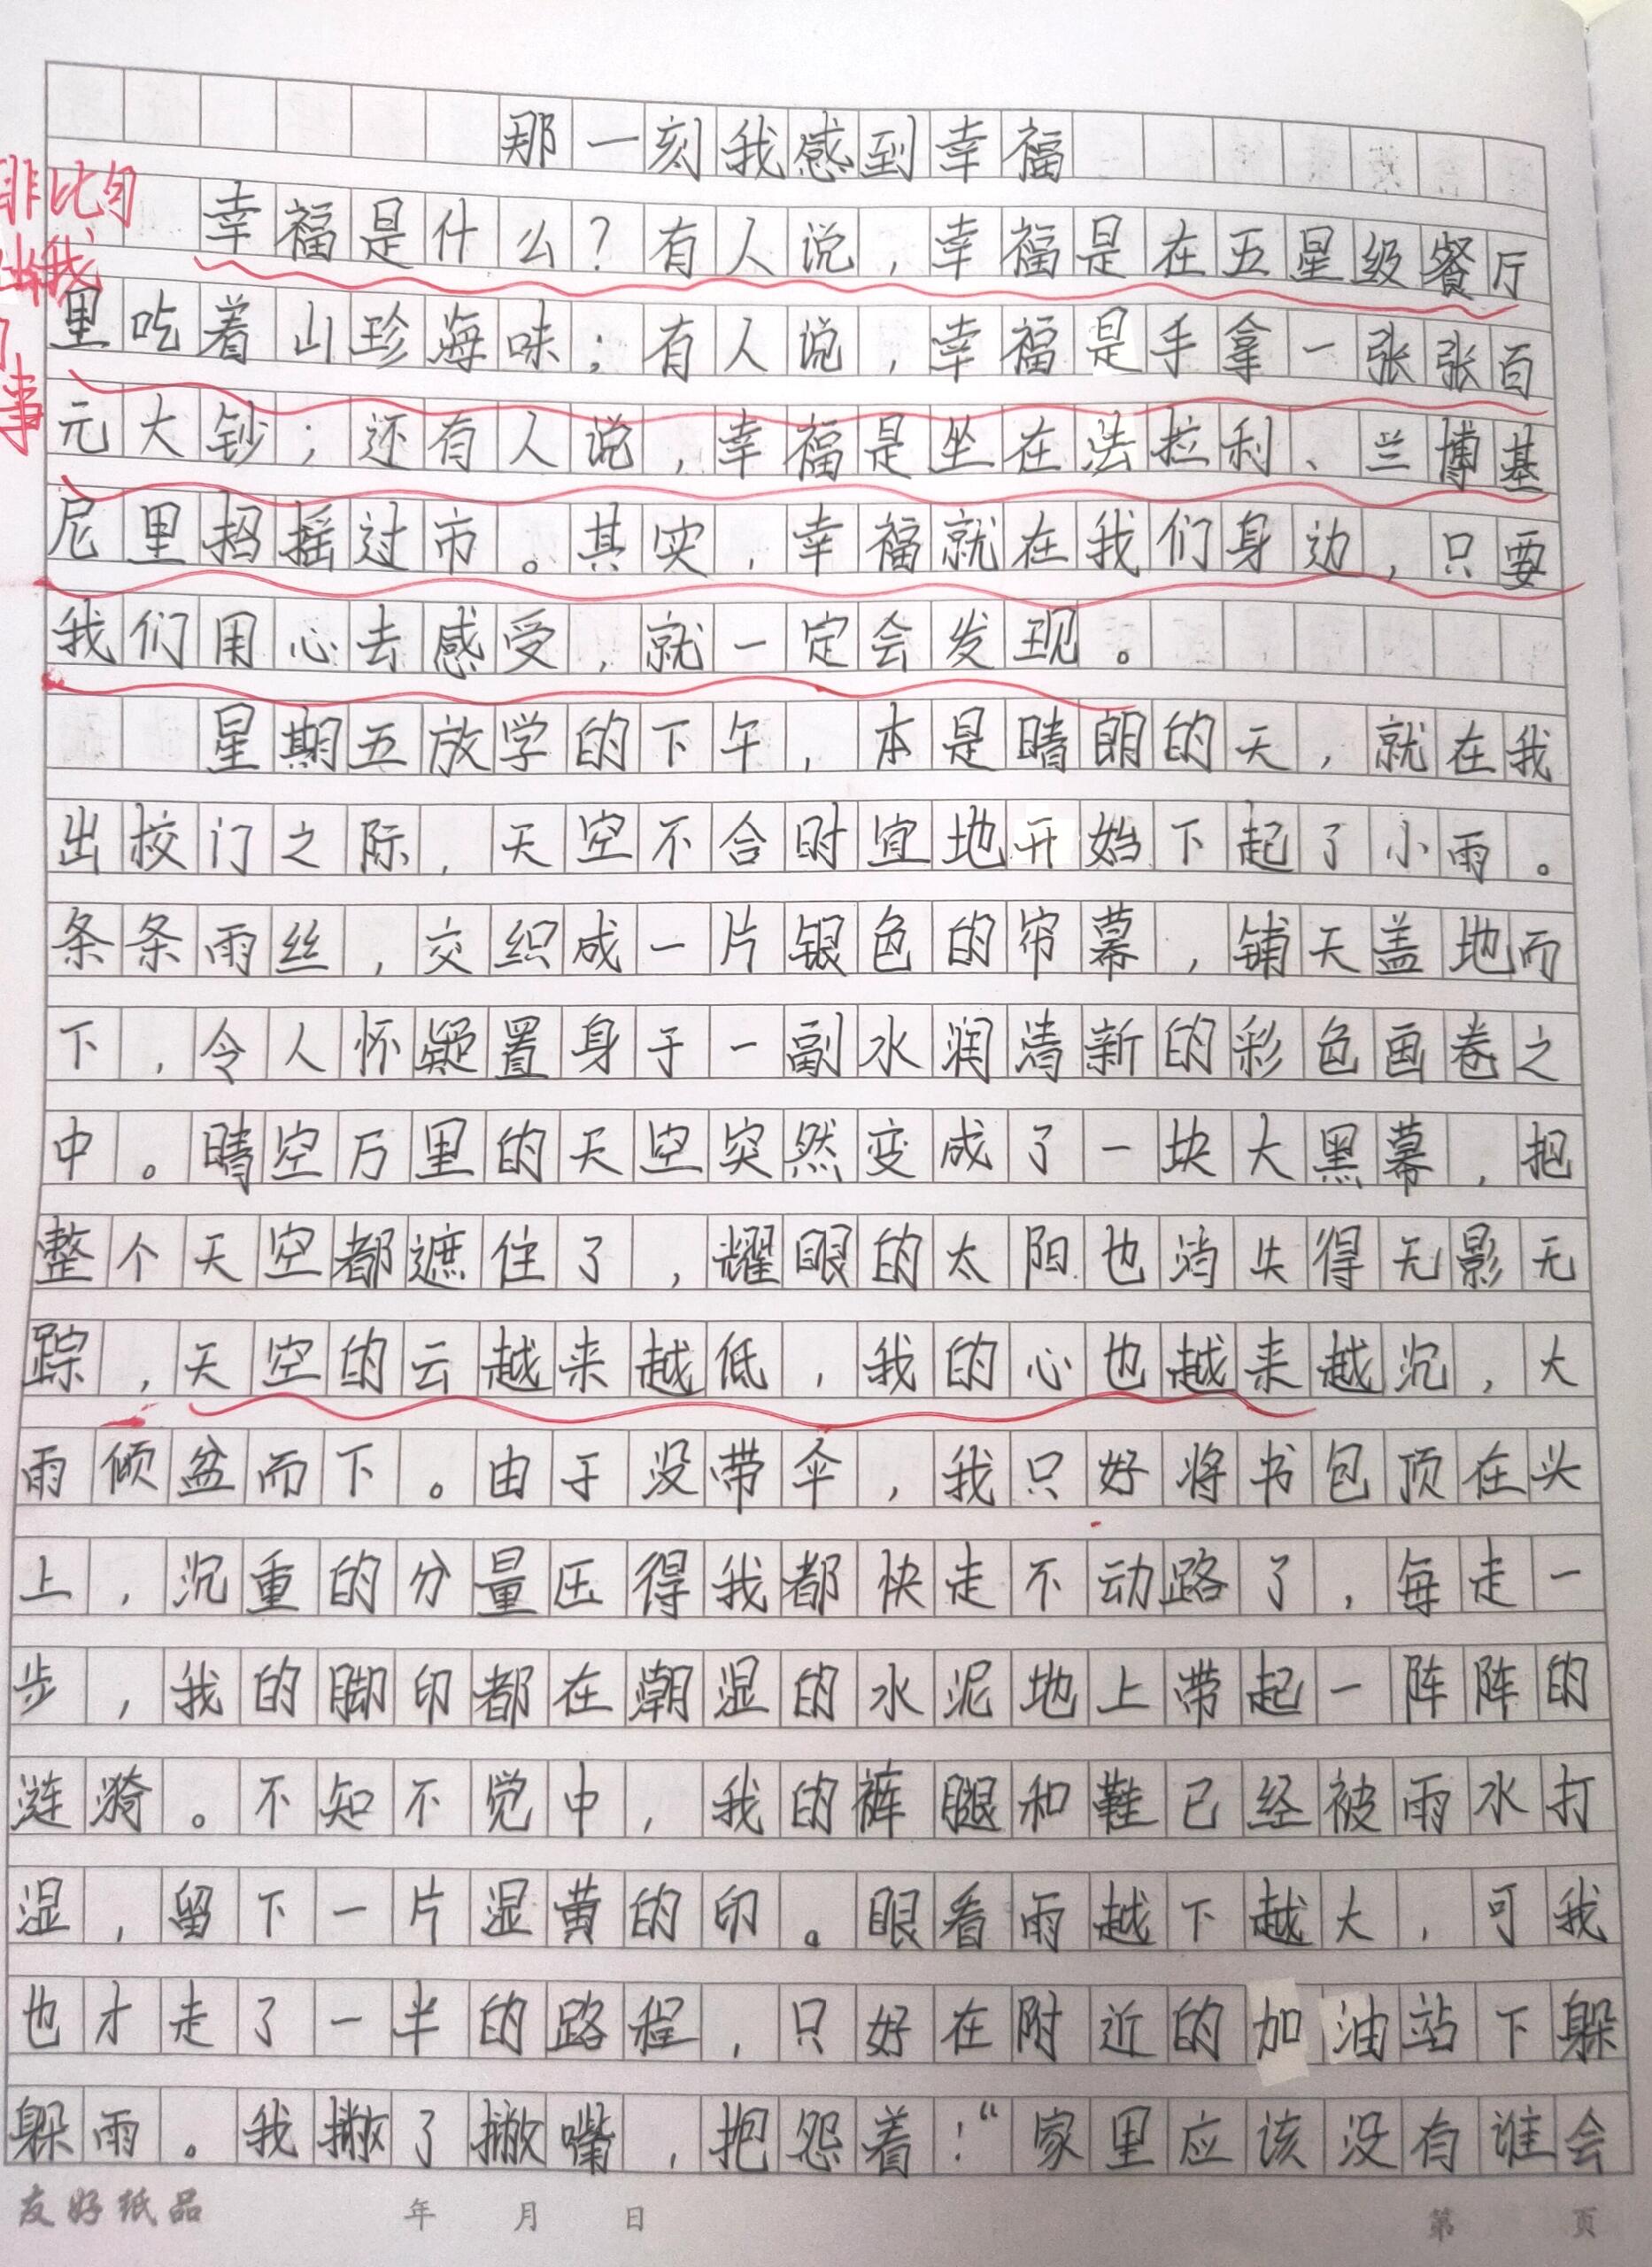 那一刻我感到幸福
排比句
幸福是什么？有人说，幸福是在五星级餐厅
里吃着山珍海味；有人说，幸福是手拿一张张百
事
元大钞；还有人说，幸福是坐在法拉利、兰博基
尼里招摇过市。其实，幸福就在我们身边，只要
我们用心去感受，就一定会发现。
星期五放学的下午，本是晴朗的天，就在我
出校门之际，天空不合时宜地开始下起了小雨。
条条雨丝，交织成一片银色的帘幕，铺天盖地而
下，令人怀疑置身于一副水润清新的彩色画卷之
中。晴空万里的天空突然变成了一块大黑幕，把
整个天空都遮住了，耀眼的太阳也消失得无影无
踪，天空的云越来越低，我的心也越来越沉，大
雨倾盆而下。由于没带伞，我只好将书包顶在头
上，沉重的分量压得我都快走不动路了，每走一
步，我的脚印都在潮湿的水泥地上带起一阵阵的
涟漪。不知不觉中，我的裤腿和鞋已经被雨水打
湿，留下一片湿黄的印。眼看雨越下越大，可我
也才走了一半的路程，只好在附近的加油站下躲
躲雨。我撇了撇嘴，抱怨着：“家里应该没有谁会
友好纸品 年 月 日 第 页